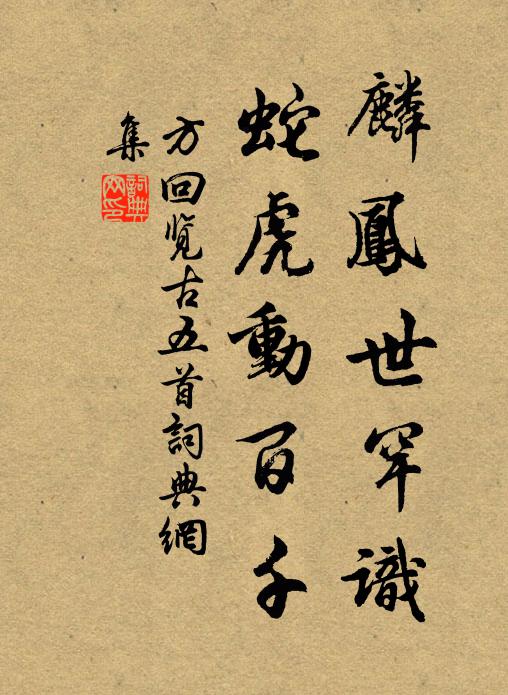 麟鳳世罕識
蛇虎動百千
方回覽古五首詞典網
集
詞典
网印